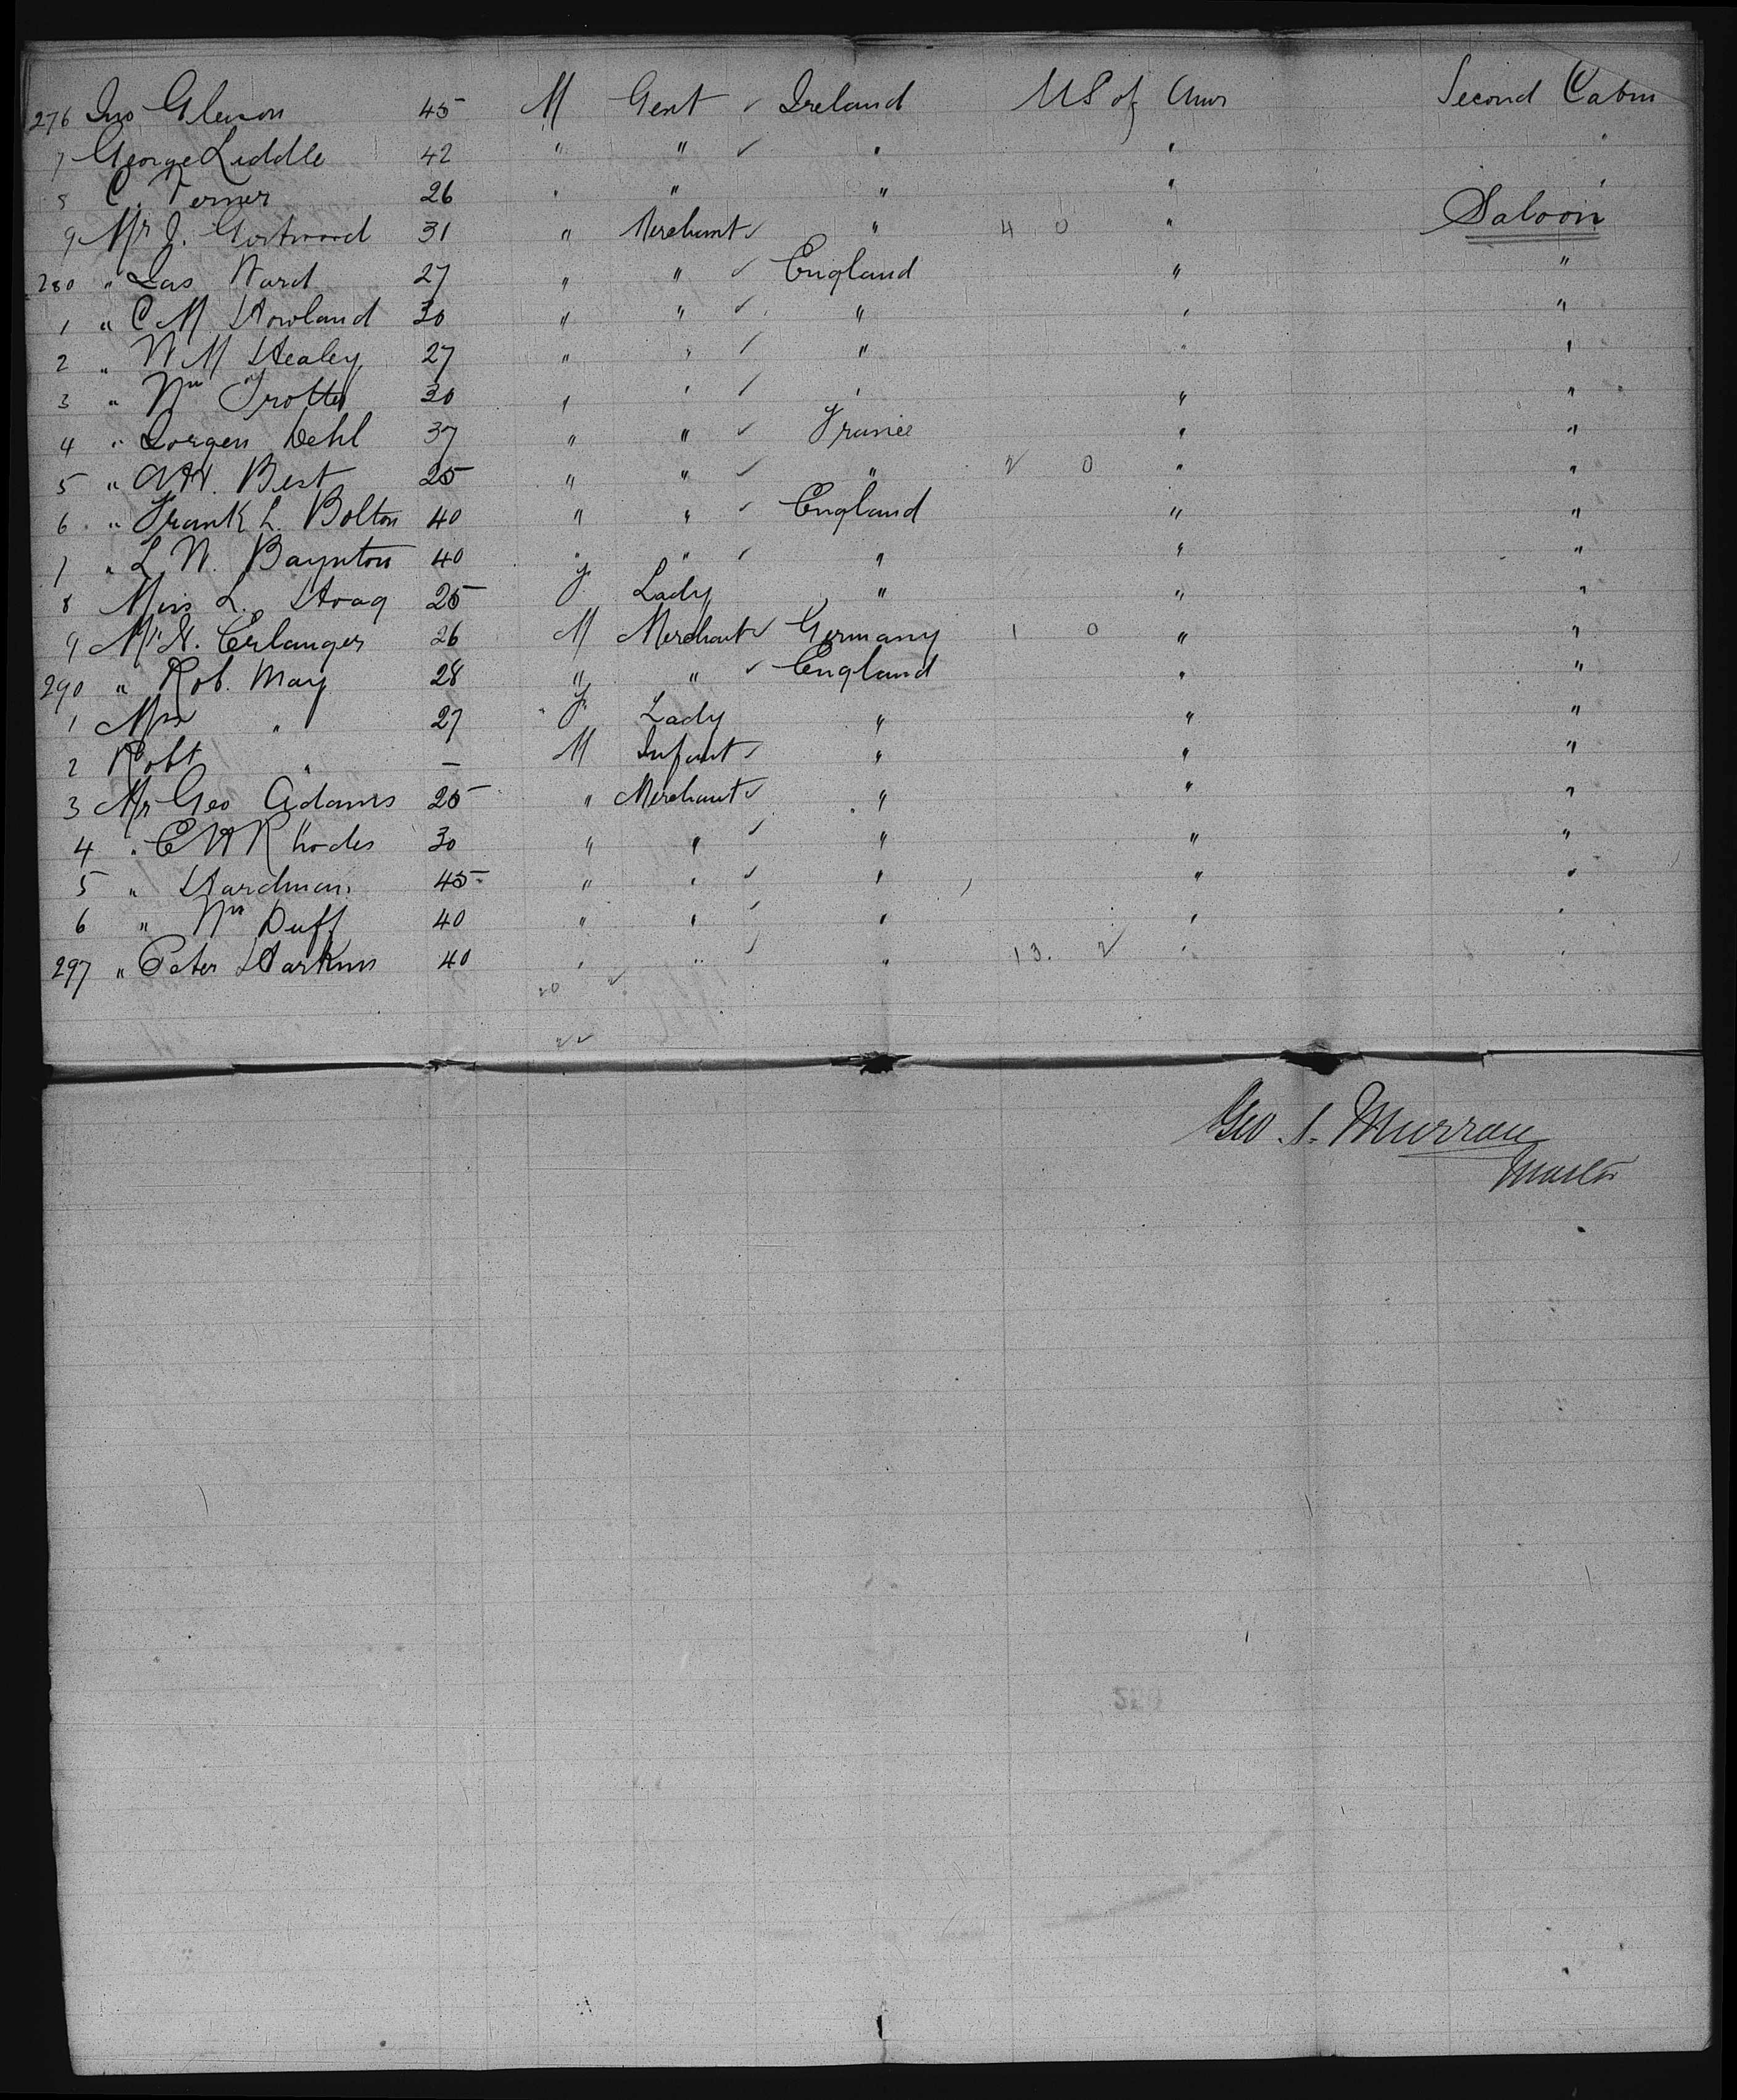 276 Jno Gleason 45 M Gent ✓ Ireland US of Amr Second Cabin
7 George Liddle 42 " " ✓ " " "
8 C. Verner 26 " " " " "
9 Mr J. 31 " Merchant ✓ " 4 0 " Saloon
280 " Jas Ward 27 " " ✓ England " "
1 " C M Howland 30 " " ✓ " " "
2 " W M Healey 27 " " ✓ " " "
3 " Wm Trotter 30 " " ✓ " " "
4 " Jorgen Dehl 37 " " ✓ France " "
5 " A H. Best 25 " " ✓ " 2 0 " "
6 " Frank L. Bolton 40 " " ✓ England " "
7 " L W. Baynton 40 " " ✓ " " "
8 Miss L. Hoag 25 F Lady " " "
9 Mr N. Erlanger 26 M Merchant ✓ Germany 1 0 " "
290 " Rob. May 28 " " ✓ England " "
1 Mrs " 27 F Lady " " "
2 Robt " — M Infant ✓ " " "
3 Mr Geo Adams 25 " Merchant ✓ " " "
4 " E W Rhodes 30 " " ✓ " " "
5 " Hardman 45 " " ✓ " " "
6 " Wm Duff 40 " " ✓ " " "
297 " Peter Harkins 40 " " ✓ " 13. 2 " "
20 2
22
Geo. S. Murray
Master